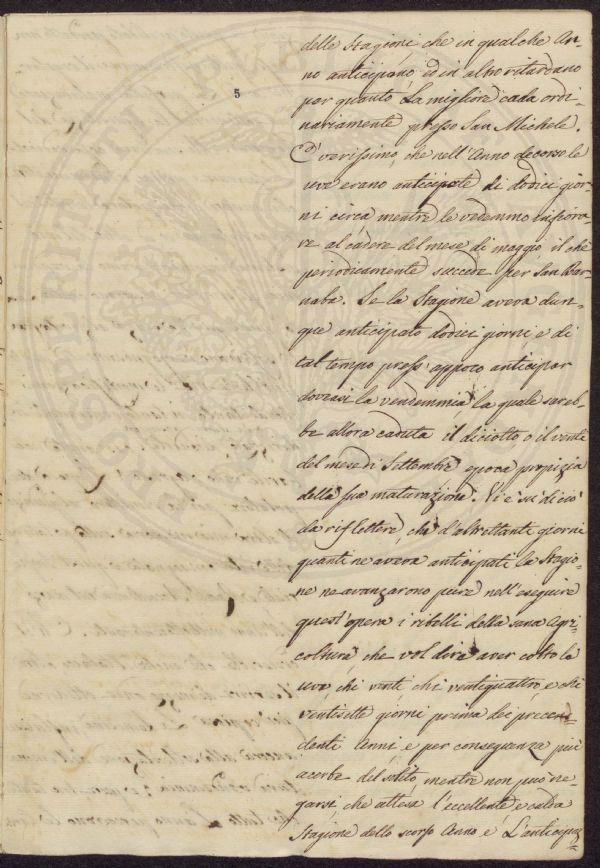 5
delle Stagioni, che in qualche An-
no anticipano, ed in altro ritardano
per quanto la migliore cada ordi-
nariamente presso San Michele.
E' verissimo, che nell'Anno decorso le
uve erano anticipate di dodici gior-
ni circa mentre le vedemmo infiora-
re al cadere del mese di maggio, il che
periodicamente succede per San Bar-
naba. Se la Stagione aveva dun-
que anticipato dodici giorni, e di
tal tempo press'appoco anticipar
doveasi la vendemmia, la quale sareb-
be allora caduta il diciotto, o il venti
del mese di Settembre epoca propizia
della sua maturazione. Vi è su di ciò
da riflettere, che d'altrettanti giorni
quanti ne aveva anticipati la Stagio-
ne ne avanzarono pure nell'eseguire
quest'opera i ribelli della sana Agri-
coltura, che vol dire aver colto le
uve, chi venti, chi ventiquattro, e chi
ventisette giorni prima dei prece-
denti Anni, e per conseguenza più
acerbe del solito, mentre non può ne-
garsi, che attesa l'eccellente, e calda
Stagione dello scorso Anno, e l'anticipa-